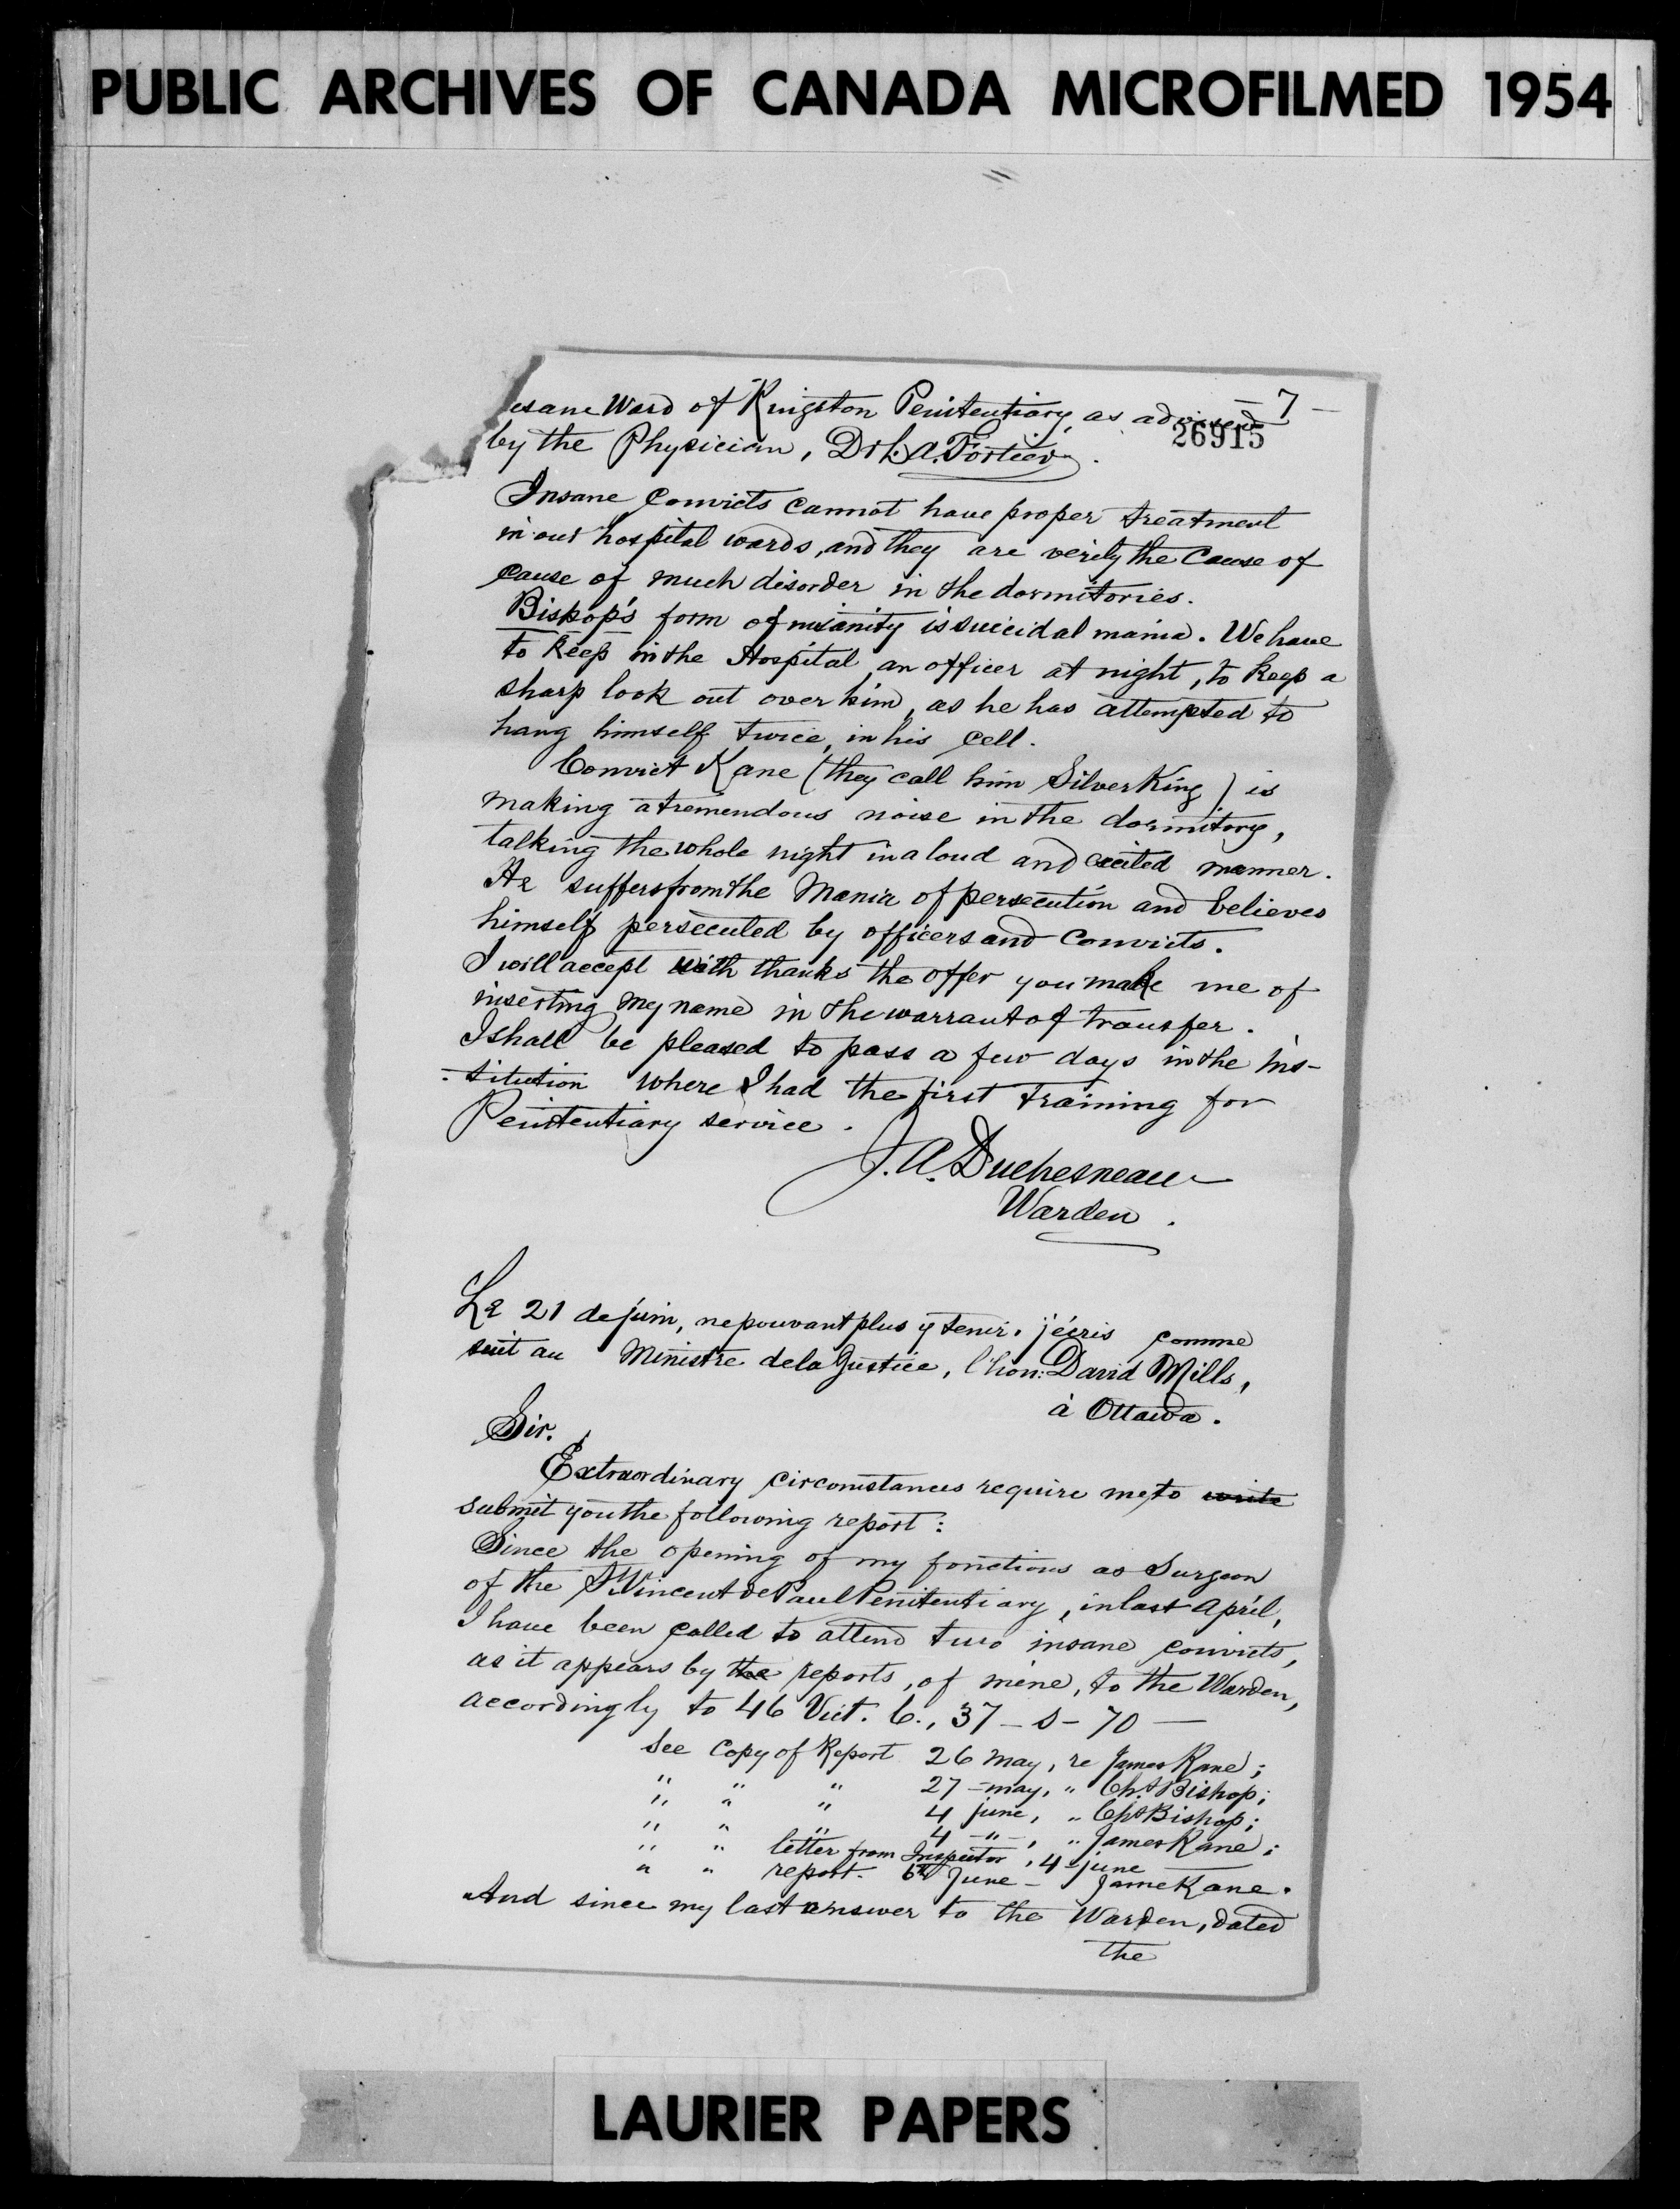 PUBLIC ARCHIVES OF CANADA MICROFILMED 1954
— 7 —
26915
nsane Ward of Kingston Penitentiary, as advised
by the Physician, Dr L. A. Fortier.
Insane Convicts cannot have proper treatment
in our hospital wards, and they are verily the Cause of
cause of much disorder in the dormitories.
Bishop's form of insanity is suicidal mania. We have
to keep in the Hospital an officer at night, to keep a
sharp look out over him, as he has attempted to
hang himself twice, in his cell.
Convict Kane (they call him Silver King) is
making a tremendous noise in the dormitory,
talking the whole night in a loud and excited manner.
He suffers from the Mania of persecution and believes
himself persecuted by officers and convicts.
I will accept with thanks the offer you make me of
inserting my name in the warrant of transfer.
I shall be pleased to pass a few days in the ins-
-titution where I had the first training for
Penitentiary service.
J. A. Duchesneau
Warden.
Le 21 de juin, ne pouvant plus y tenir, j'écris comme
suit au Ministre de la Justice, l'hon: David Mills,
à Ottawa.
Sir.
Extraordinary circomstances require me to write
submit you the following report:
Since the opening of my fonctions as Surgeon
of the St Vincent de Paul Penitentiary, in last April,
I have been called to attend two insane convicts,
as it appears by the reports, of mine, to the Warden,
accordingly to 46 Vict. C., 37 – S – 70 —
See Copy of Report 26 May, re James Kane;
" " " 27 – may, " Chs Bishop;
" " " 4 june, " Chs Bishop;
" " " 4 – " – , " James Kane;
" " letter from Inspector, 4 – june
" " report. 6th June – Jame Kane.
And since my last answer to the Warden, dated
the
LAURIER PAPERS